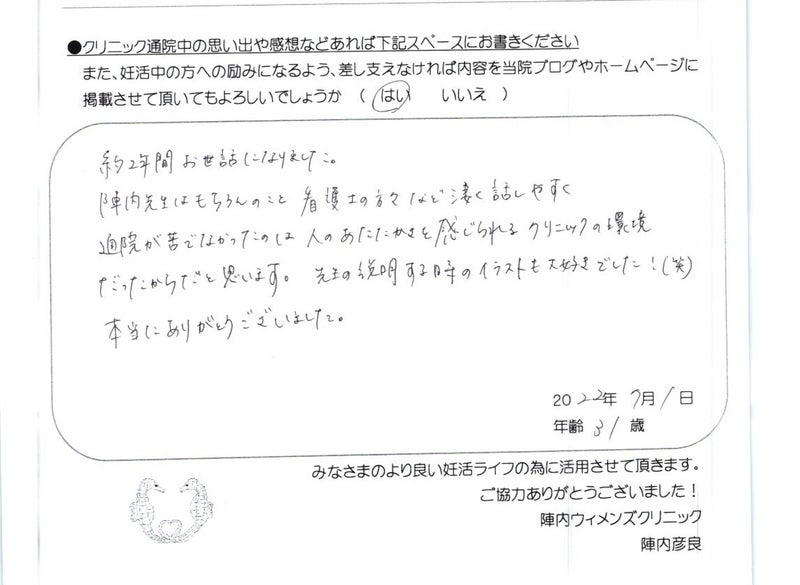 ●クリニック通院中の思い出や感想などあれば下記スペースにお書きください
また、妊活中の方への励みになるよう、差し支えなければ内容を当院ブログやホームページに
掲載させて頂いてもよろしいでしょうか （ はい いいえ ）
約2年間お世話になりました。
陣内先生はもちろんのこと 看護士の方々など凄く話しやすく
通院が苦でなかったのは 人のあたたかさを感じられる クリニックの環境
だったからだと思います。 先生の説明する時のイラストも大好きでした！(笑)
本当にありがとうございました。
2022年 7月 1日
年齢 31 歳
みなさまのより良い妊活ライフの為に活用させて頂きます。
ご協力ありがとうございました！
陣内ウィメンズクリニック
陣内彦良